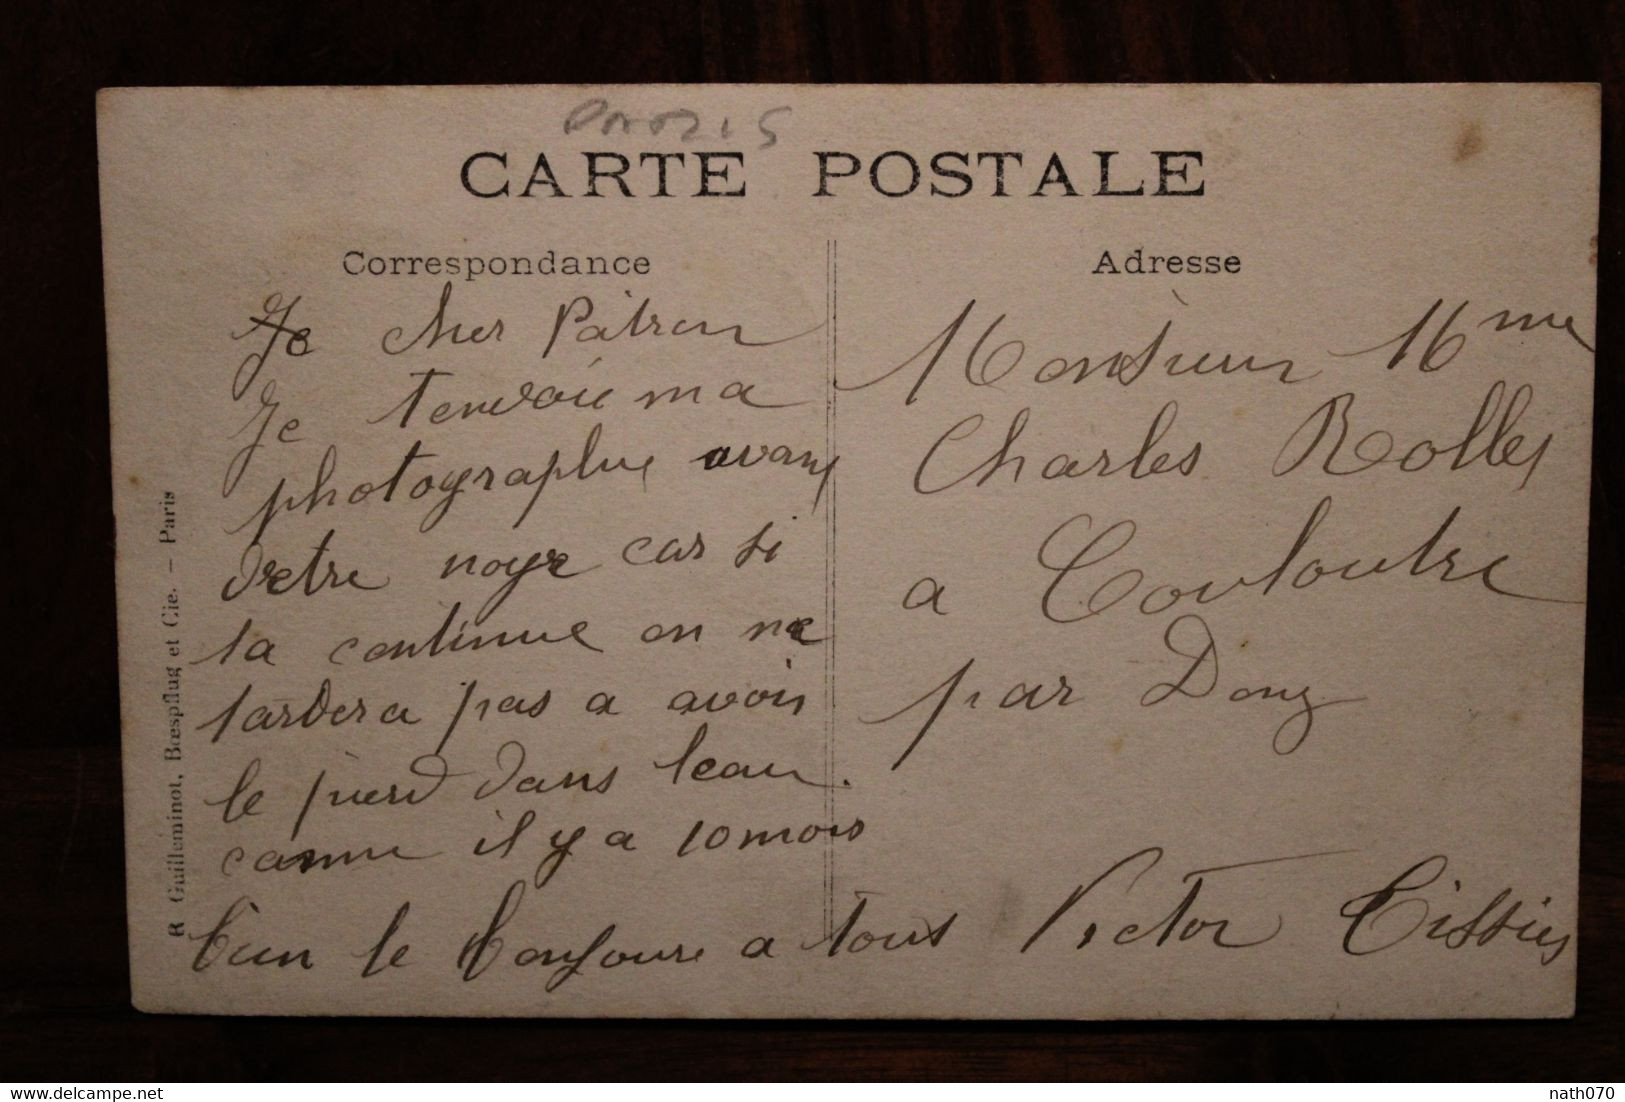 Paris
CARTE POSTALE
Correspondance
Je cher Patron
Je tenvoie ma
photographie avant
detre noye car si
sa continue on ne
tardera pas a avoir
le pied dans leau.
comme il y a 10 mois
bien le bonjoure a tous Victor Tissier
Adresse
Monsieur Mme
Charles Rolley
a Couloutre
par Donzy
R Guilleminot, Bœspflug et Cie. — Paris
delcampe.net
nath070